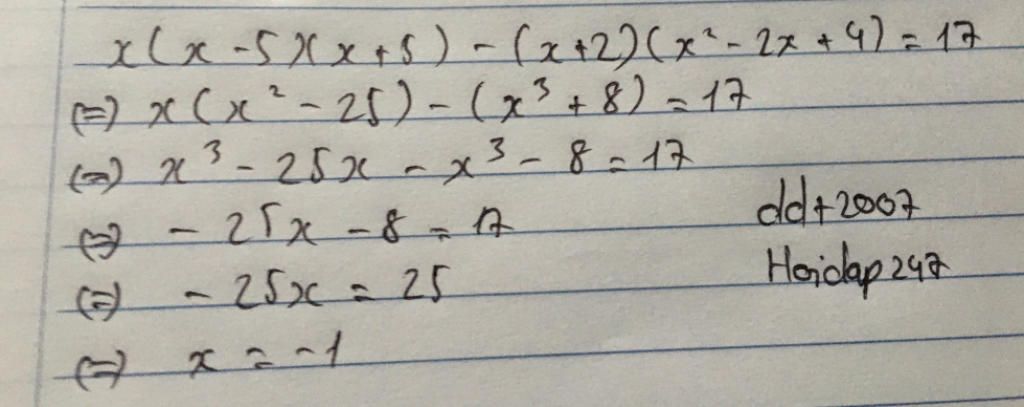 x(x-5)(x+5) - (x+2)(x² - 2x + 4) = 17
(=) x(x² - 25) - (x³ + 8) = 17
(=) x³ - 25x - x³ - 8 = 17
(=) - 25x - 8 = 17
(=) - 25x = 25
(=) x = -1
ddt2007
Hoidap247